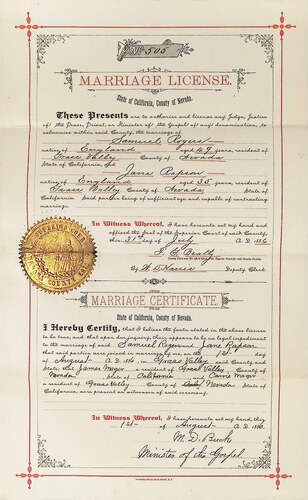 No 505
MARRIAGE LICENSE.
State of California, County of Nevada.
These Presents are to authorize and license any Judge, Justice
of the Peace, Priest, or Minister of the Gospel of any denomination, to
solemnize within said County, the marriage of
Samuel Rogers
native of England aged 49 years, resident of
Grass Valley County of Nevada
State of California, and
Jane Rapson
native of England aged 35 years, resident of
Grass Valley County of Nevada
State of California. Said parties being of sufficient age and capable of contracting
marriage.
In Witness Whereof, I have hereunto set my hand and
affixed the seal of the Superior Court of said County,
this 31st day of July A. D. 1886
County Clerk
By Deputy Clerk
MARRIAGE CERTIFICATE.
State of California, County of Nevada.
I Hereby Certify, that I believe the facts stated in the above license
to be true, and that upon due inquiry, there appears to be no legal impediment
to the marriage of said Samuel Rogers and Jane Rapson
that said parties were joined in marriage by me, on the 1st day
of August A. D. 1886 in Grass Valley County of Nevada
State of California
a resident of Grass Valley County of Nevada State of
California, were present as witnesses of said ceremony.
In Witness Whereof, I have hereunto set my hand, this
1st of August A. D. 1886.
M. D. Buck
Minister of the Gospel.